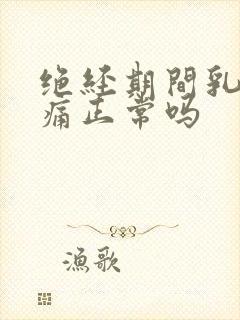 绝经期間乳
痛正常吗
漁歌